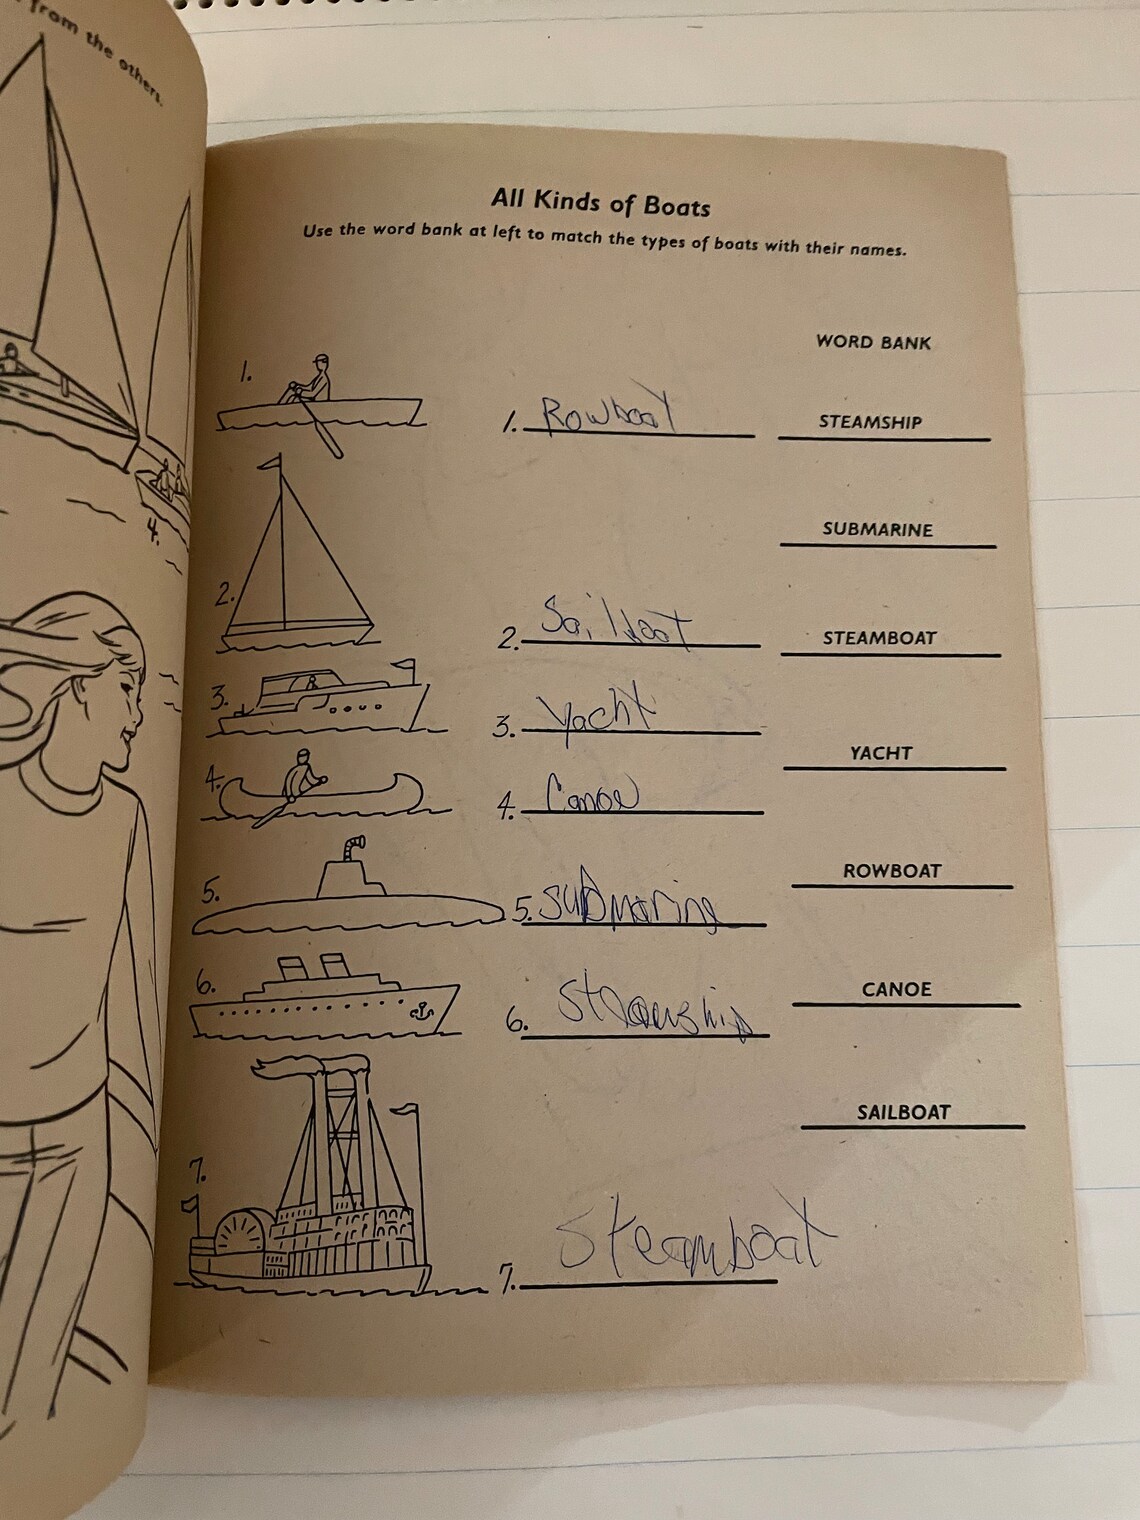 from the others.
4.
All Kinds of Boats
Use the word bank at left to match the types of boats with their names.
WORD BANK
1.
1. Rowboat
STEAMSHIP
SUBMARINE
2.
2. Sailboat
STEAMBOAT
3.
3. Yacht
YACHT
4.
4. Canoe
ROWBOAT
5.
5. submarine
CANOE
6.
6. Steamship
SAILBOAT
7.
7. Steamboat